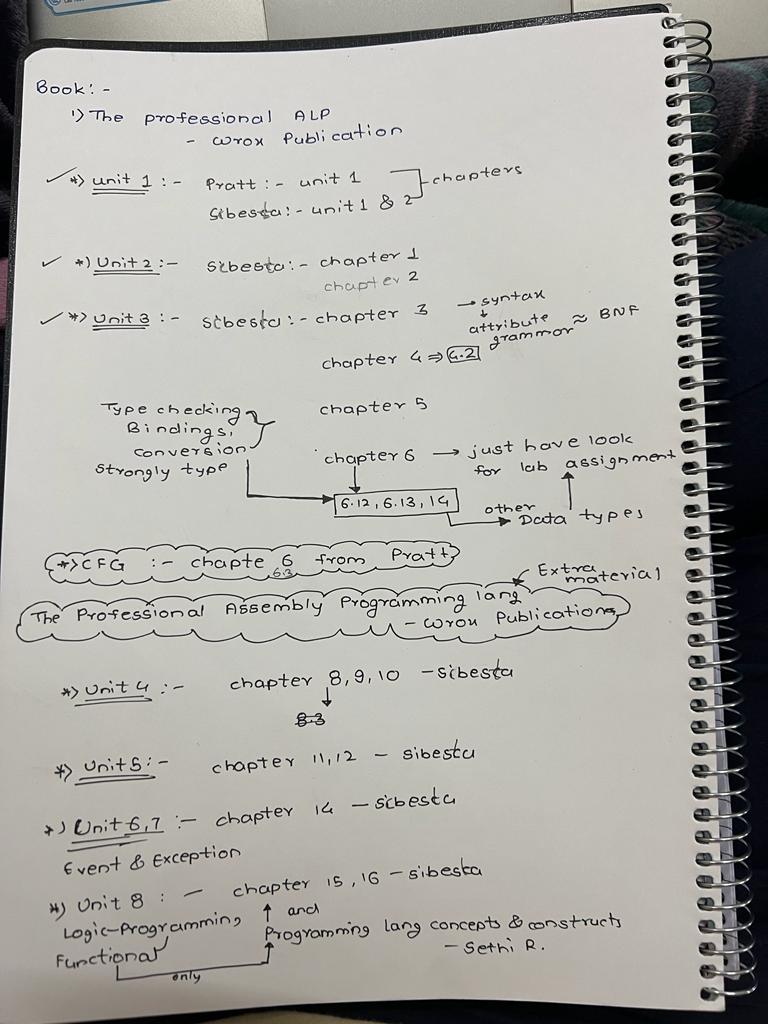 Book:-
1) The professional ALP
- wrox Publication
*) unit 1 :- Pratt :- unit 1
Sibesta :- unit 1 & 2
chapters
*) Unit 2 :- sibesta :- chapter 1
chapter 2
*) Unit 3 :- sibesta :- chapter 3 → syntax
attribute grammor ≈ BNF
chapter 4 ⇒ 4.2
chapter 5
Type checking
Bindings,
conversion
strongly type
chapter 6 → just have look
for lab assignment
6.12, 6.13, 14
other
Data types
*) CFG :- chapte 6 from Pratt
6.3
Extra
material
The Professional Assembly Programming lang
- wrox Publications
*) Unit 4 :- chapter 8, 9, 10 - sibesta
8.3
*) Unit 5 :- chapter 11, 12 - sibesta
*) Unit 6,7 :- chapter 14 - sibesta
Event & Exception
*) Unit 8 : - chapter 15, 16 - sibesta
Logic-Programming
and
Functional
Programming lang concepts & constructs
- Sethi R.
only